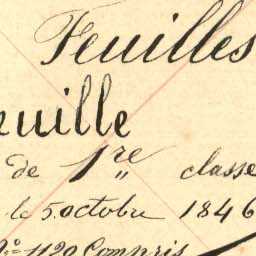 Feuilles
euille
de 1re classe
le 5 octobre 1846
No 1120 Compris